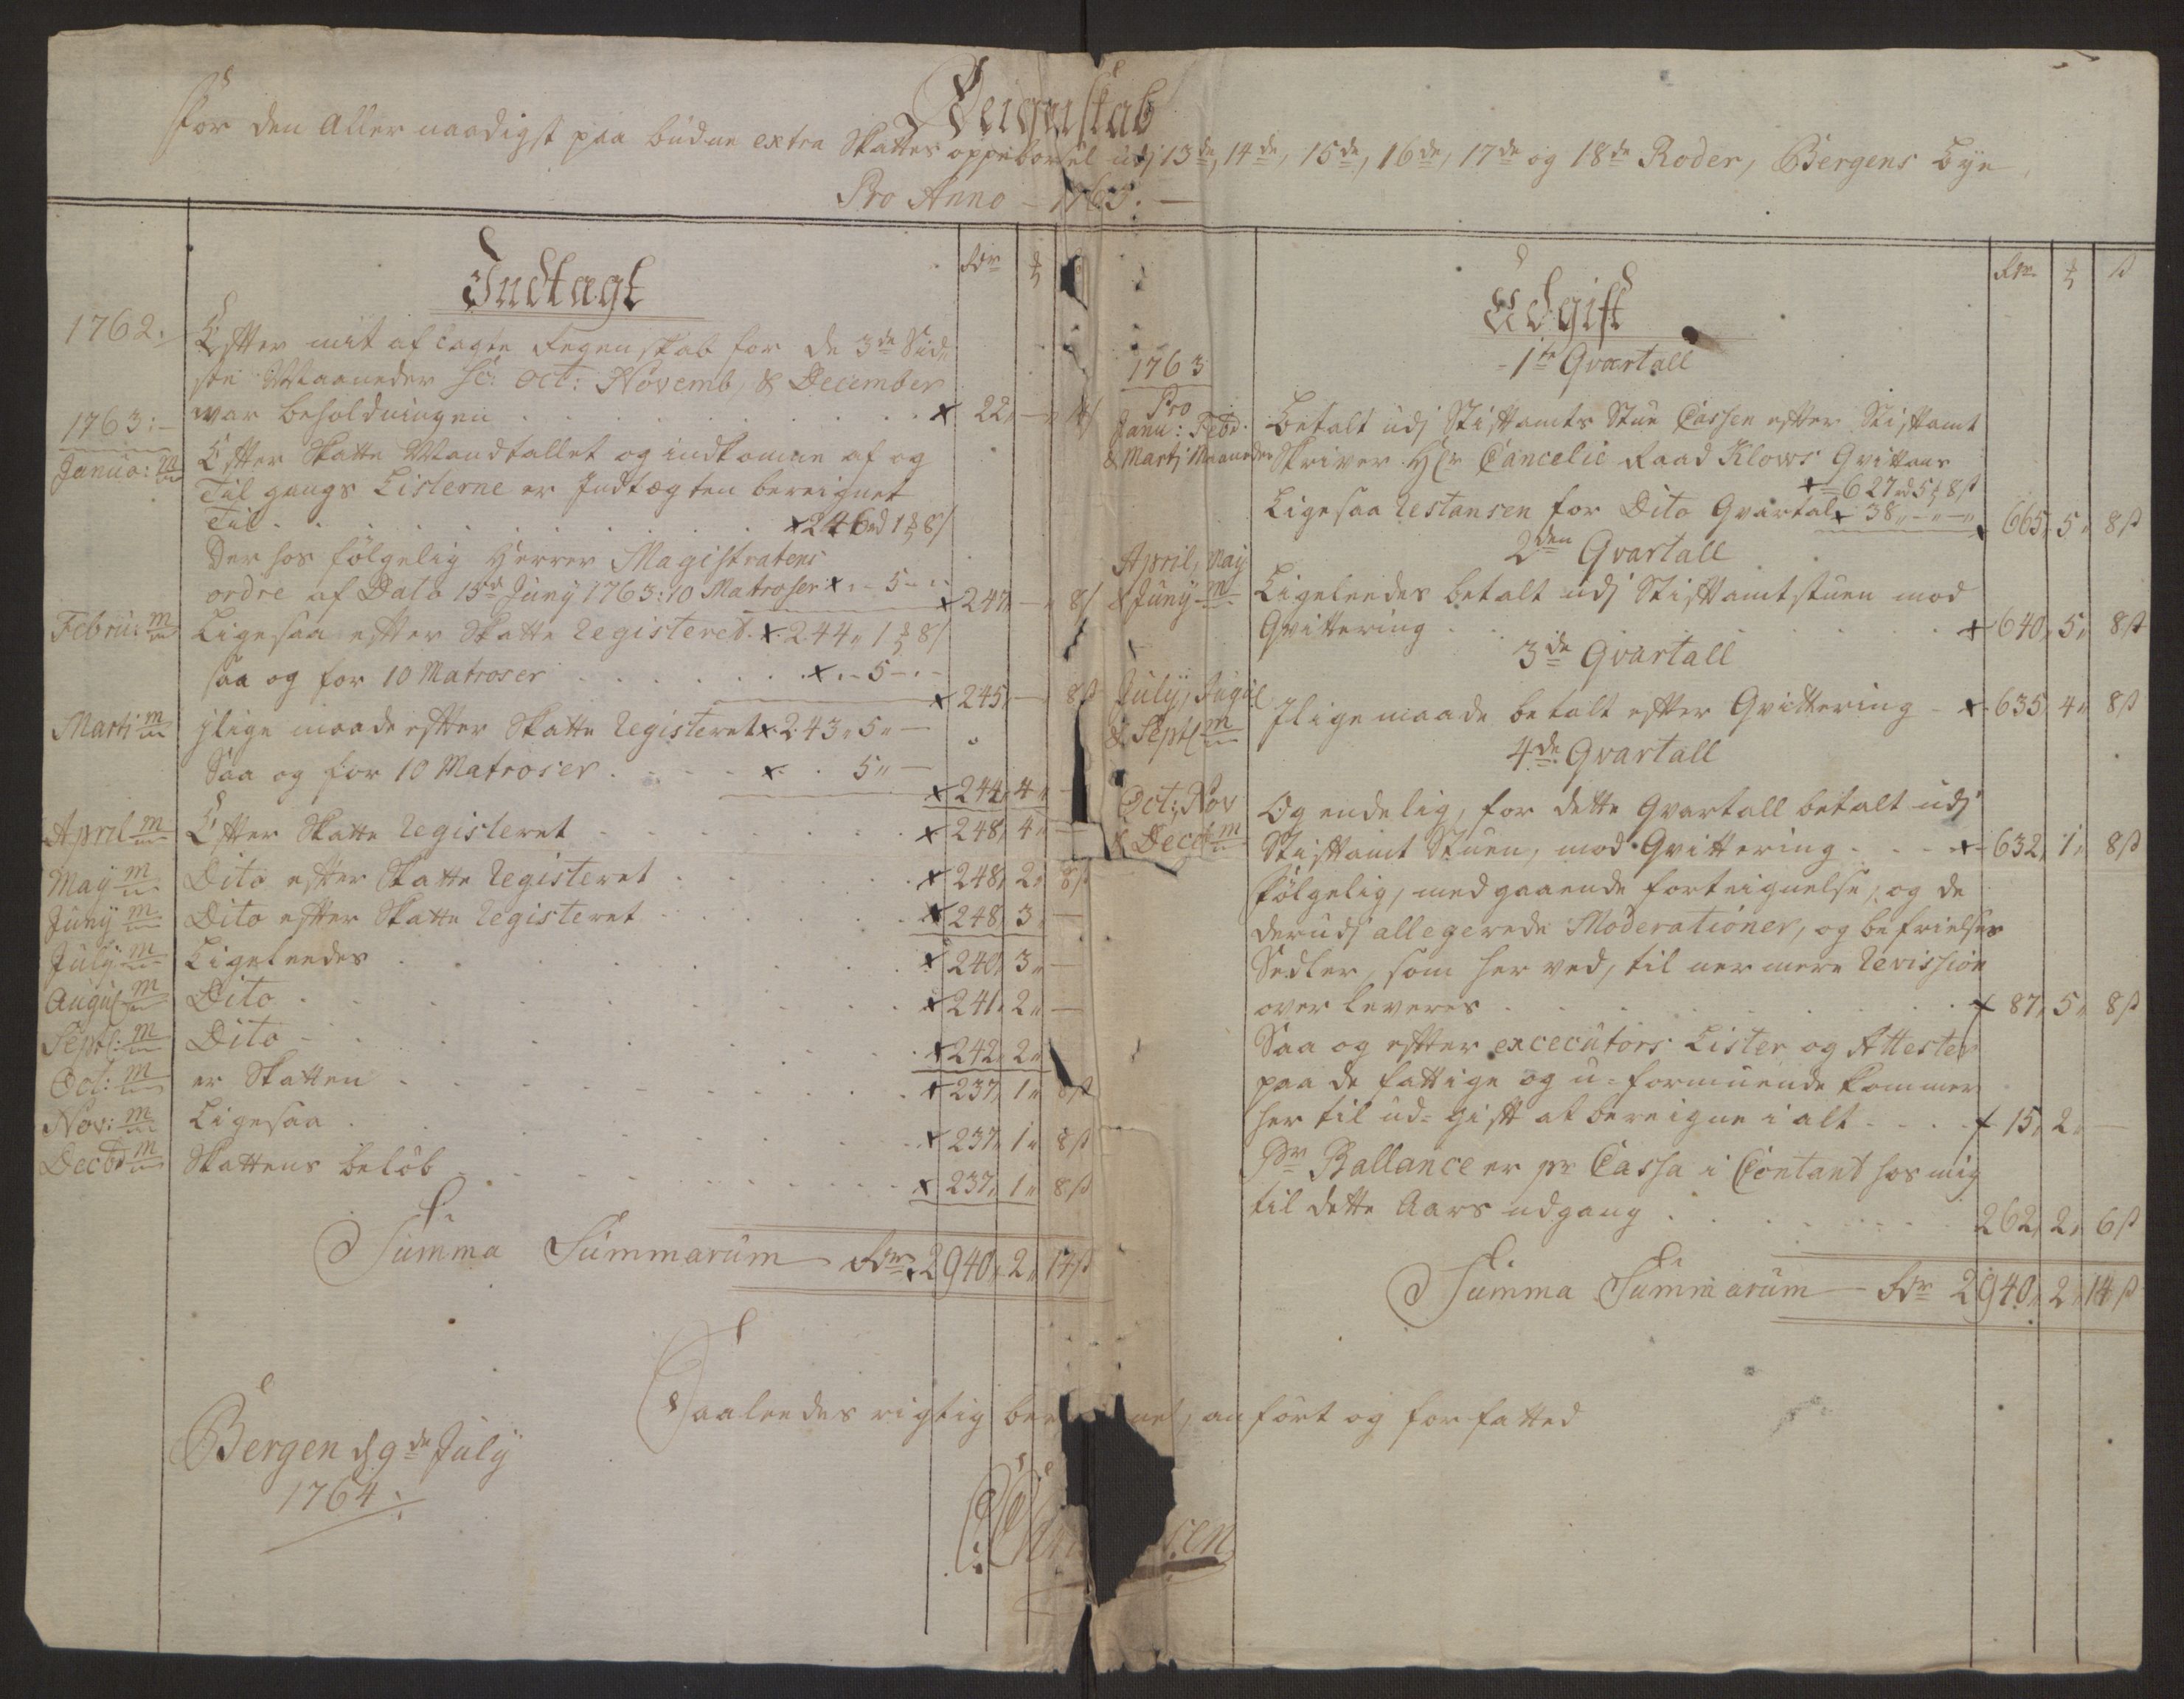 Reigenskab
for den Aller naadigst paa budne extra Skattes oppebørsel udj 13de, 14de, 15de, 16de, 17de og 18de Roder, Bergens Bye,
Pro Anno - 1763. -
Indtagt
Rdr ß
1762: Efter mit aflagte Regenskab for de 3de Sid-
ste Maaneder sc: Oct: Novemb, & December
war beholdningen . . . x 22 " - " 4 ß
1763:-
Janua: m Efter Skatte Mandtallet og indkomne af og
Til gangs Listerne er Indtægten bereignet
Til . . . x 246 rd 1 8 ß
Der hos følgelig Herrer Magistratens
ordre af Dato 15de Juny 1763: 10 Matroser x " - 5 - " - x 247 " - " 8 ß
Febru: m Ligesaa efter Skatte Registeret x 244 " 1 8 ß
saa og for 10 Matroser . . . x " - 5 - " - x 245 " - 8 ß
Marti m jlige maade efter Skatte Registeret x 243 " 5 " -
Saa og for 10 Matroser . . . x . 5 " - x 244 " 4 " -
April m Efter Skatte Registeret . . . x 248 " 4 " -
May m Dito efter Skatte Registeret . . . x 248 " 2 " 8 ß
Juny m Dito efter Skatte Registeret . . . x 248 " 3 " -
July m Ligeleedes . . . x 240 " 3 " -
Augus m Dito . . . x 241 " 2 " -
Septb: m Dito . . . x 242 " 2 "
Oct: m er Skatten . . . x 237 " 1 " 8 ß
Nov: m Ligesaa . . . x 237 " 1 " 8 ß
Decbr m Skattens beløb . . . x 237 " 1 " 8 ß
Summa Summarum Rdr 2940 " 2 " 14 ß
Udgift
Rdr ß
1763 - 1te Qvartall
Pro
Janu: Febr: Betalt udj Stiftamts Stue Cassen efter Stiftamt
& Martj Maaneder Skriver Hr Cancelie Raad Klows Qvittans
x = 627 rd 5 8 ß
Ligesaa Restansen for Dito Qvartal x 38 " - " - " x 665 " 5 " 8 ß
2den Qvartall
April, May
& Juny m Ligeleedes betalt udj Stiftamtstuen mod
Qvittering . . . x 640 " 5 " 8 ß
3de Qvartall
July, Augus
& Septb m Jlige maade betalt efter Qvittering - x 635 " 4 " 8 ß
4de Qvartall
Oct: Nov Og endelig, for dette Qvartall betalt udj
& Decbr m Stiftamt Stuen, mod Qvittering . . . x 632 " 1 " 8 ß
følgelig, med gaaende forteignelse, og de
derudj allegerede Moderationer, og befrielses
Sedler, som her ved, til nermere Revission
over leveres . . . x 87 " 5 " 8 ß
Saa og efter excecutors Lister og Attester
paa de fattige og u=formuende kommer
her til ud=gift at bereigne i alt . . . x 15 " 2 " -
Pr Ballance er pr Cassa i Contant hos mig
til dette Aars udgang . . . 262 " 2 " 6 ß
Summa Summarum - Rdr 2940 " 2 " 14 ß
Saaleedes rigtig anført og forfatted
Bergen d 9de July
1764: